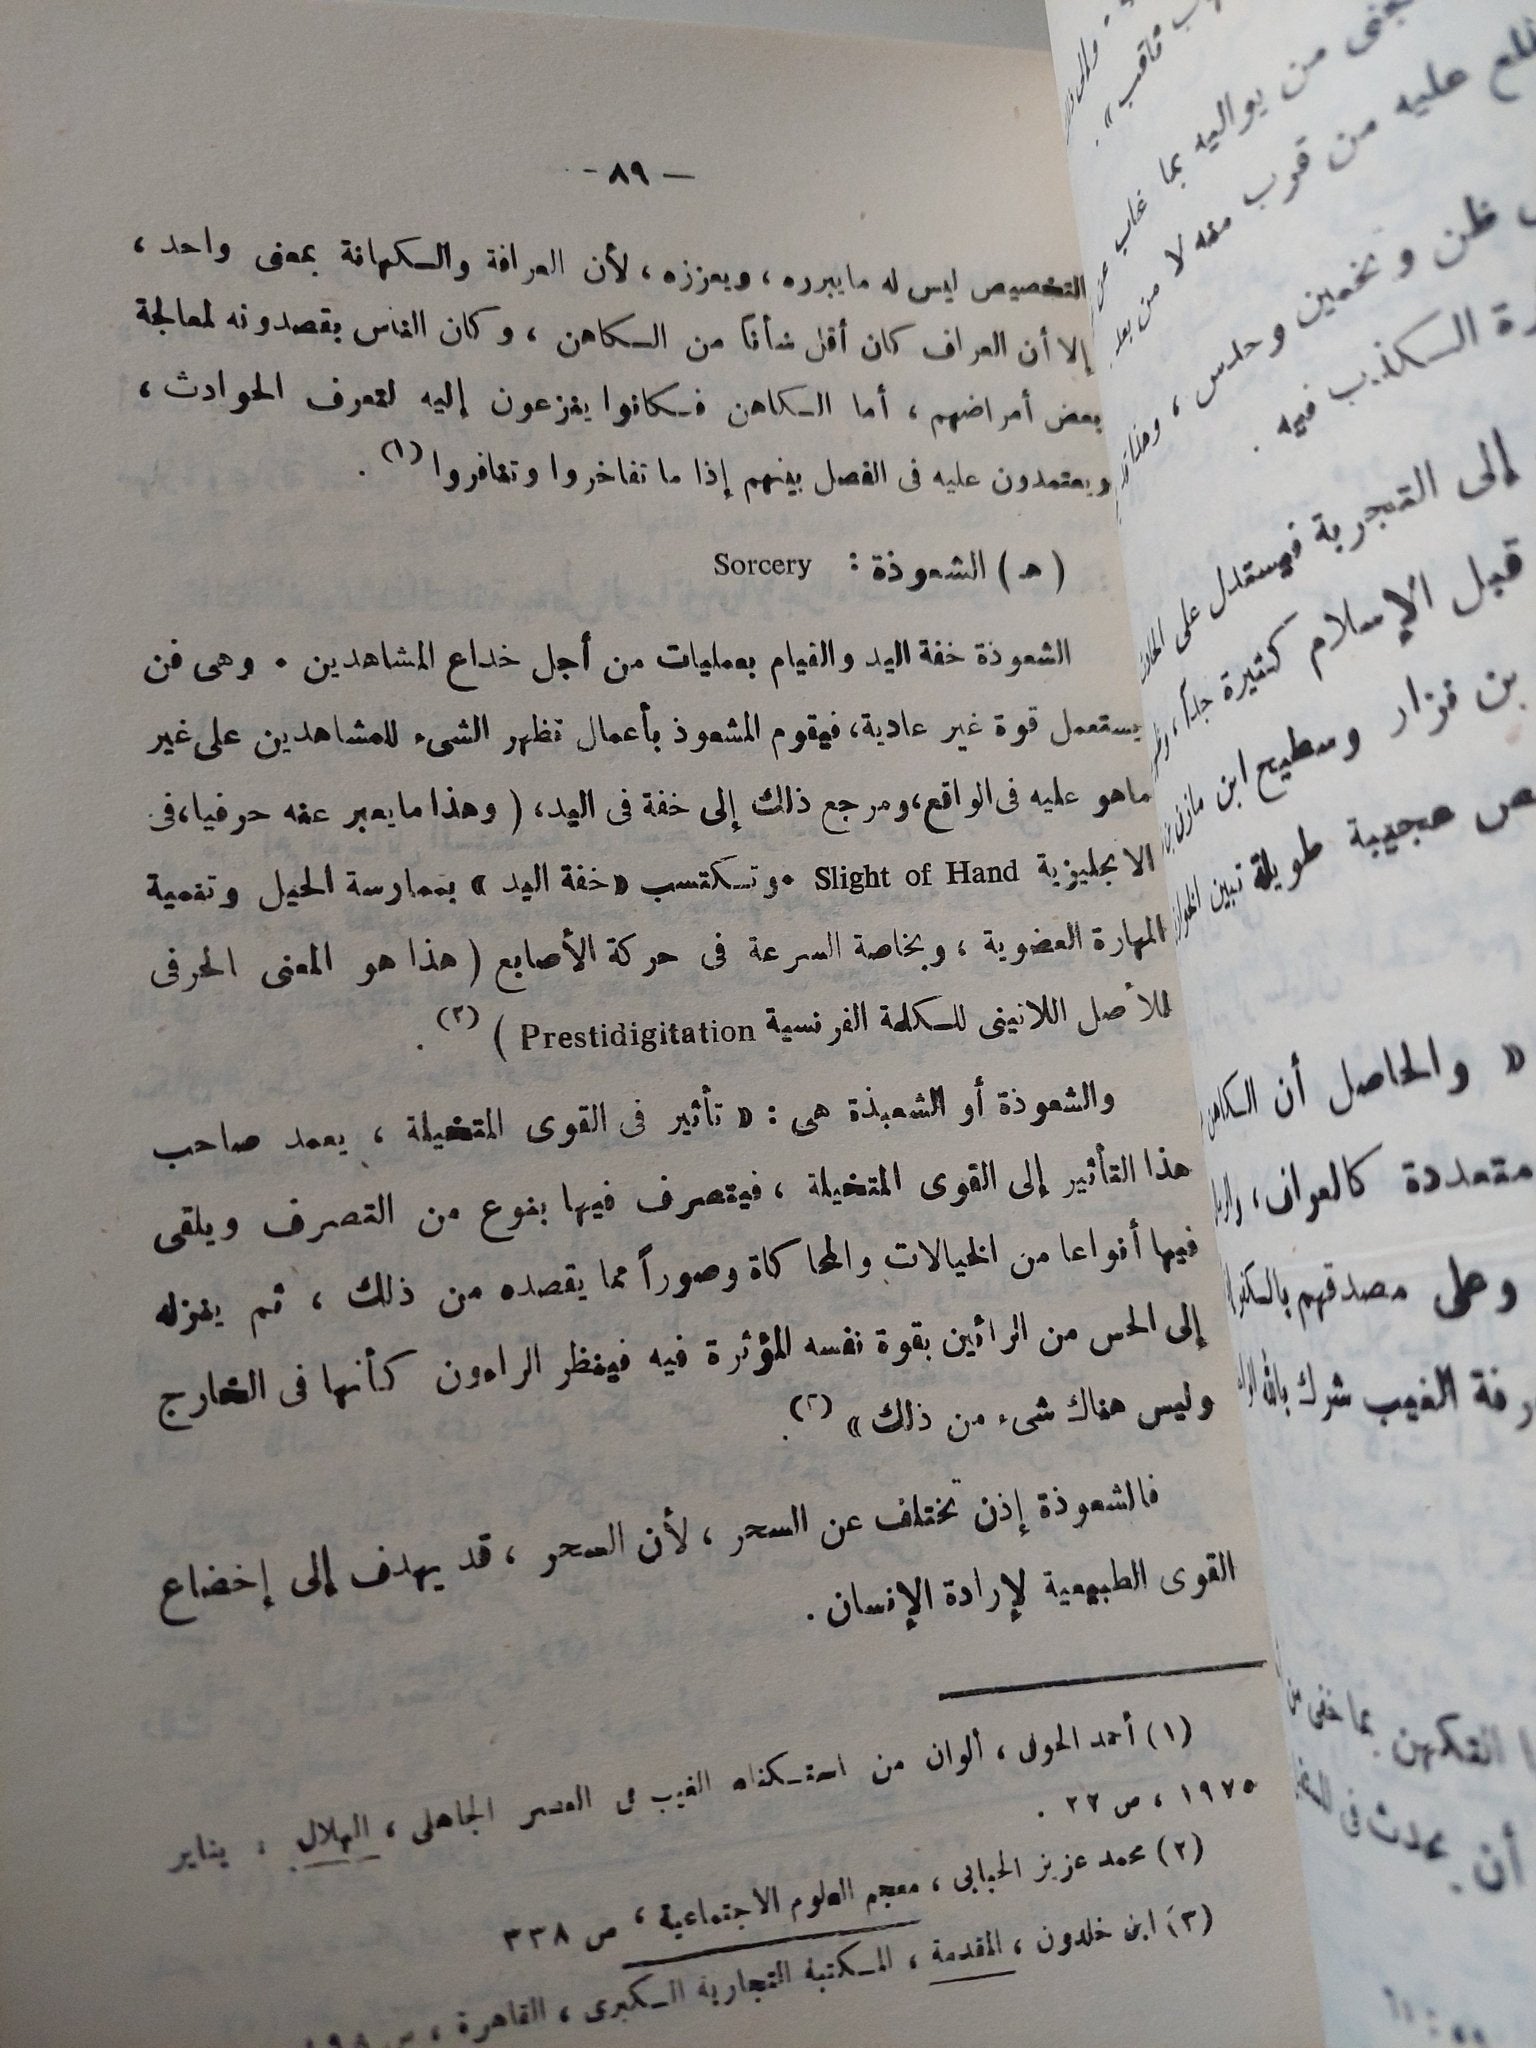 - ٨٩ -
التخصيص ليس له مايبرره ، ويعززه ، لأن العرافة والكهانة بمعنى واحد ،
إلا أن العراف كان أقل شأناً من الكاهن ، وكان الناس يقصدونه لمعالجة
بعض أمراضهم ، أما الكاهن فكانوا يفزعون إليه لتعرف الحوادث ،
ويعتمدون عليه فى الفصل بينهم إذا ما تفاخروا وتنافروا (١) .
( هـ ) الشعوذة : Sorcery
الشعوذة خفة اليد والقيام بعمليات من أجل خداع المشاهدين . وهى فن
يستعمل قوة غير عادية، فيقوم المشعوذ بأعمال تظهر الشىء للمشاهدين على غير
ماهو عليه فى الواقع، ومرجع ذلك إلى خفة فى اليد، ( وهذا ما يعبر عنه حرفيا، فى
الانجليزية Slight of Hand . وتكتسب « خفة اليد » بممارسة الحيل وتنمية
المهارة العضوية ، وبخاصة السرعة فى حركة الأصابع ( هذا هو المعنى الحرفى
للأصل اللاتينى للكلمة الفرنسية Prestidigitation ) (٢) .
والشعوذة أو الشعبذة هى : « تأثير فى القوى المتخيلة ، يعمد صاحب
هذا التأثير إلى القوى المتخيلة ، فيتصرف فيها بنوع من التصرف ويلقى
فيها أنواعا من الخيالات والمحاكاة وصوراً مما يقصده من ذلك ، ثم ينزله
إلى الحس من الرائين بقوة نفسه المؤثرة فيه فينظر الراءون كأنها فى الخارج
وليس هناك شىء من ذلك » (٣).
فالشعوذة إذن تختلف عن السحر ، لأن السحر ، قد يهدف إلى إخضاع
القوى الطبيعية لإرادة الإنسان .
(١) أحمد الحوفى ، ألوان من استكناه الغيب فى العصر الجاهلى ، الهلال ، يناير
١٩٧٥ ، ص ٢٢ .
(٢) محمد عزيز الحبابى ، معجم العلوم الاجتماعية ، ص ٣٣٨
(٣) ابن خلدون ، المقدمة ، المكتبة التجارية الكبرى ، القاهرة ، ص
ثاقب » .
من يواليه بما غاب عن
عليه من قرب منه لا من بعد
ظن وتخمين وحدس ،
الكذب فيه .
إلى التجربة فيستدل على
قبل الإسلام كثيرة جداً ،
بن نزار وسطيح ابن مازن بن
عجيبة طويلة تبين
« والحاصل أن الكاهن
متعددة كالعراف ،
وعلى مصدقهم بالكفر
الغيب شرك بالله
التكهن بما خفى من
أن يحدث فى